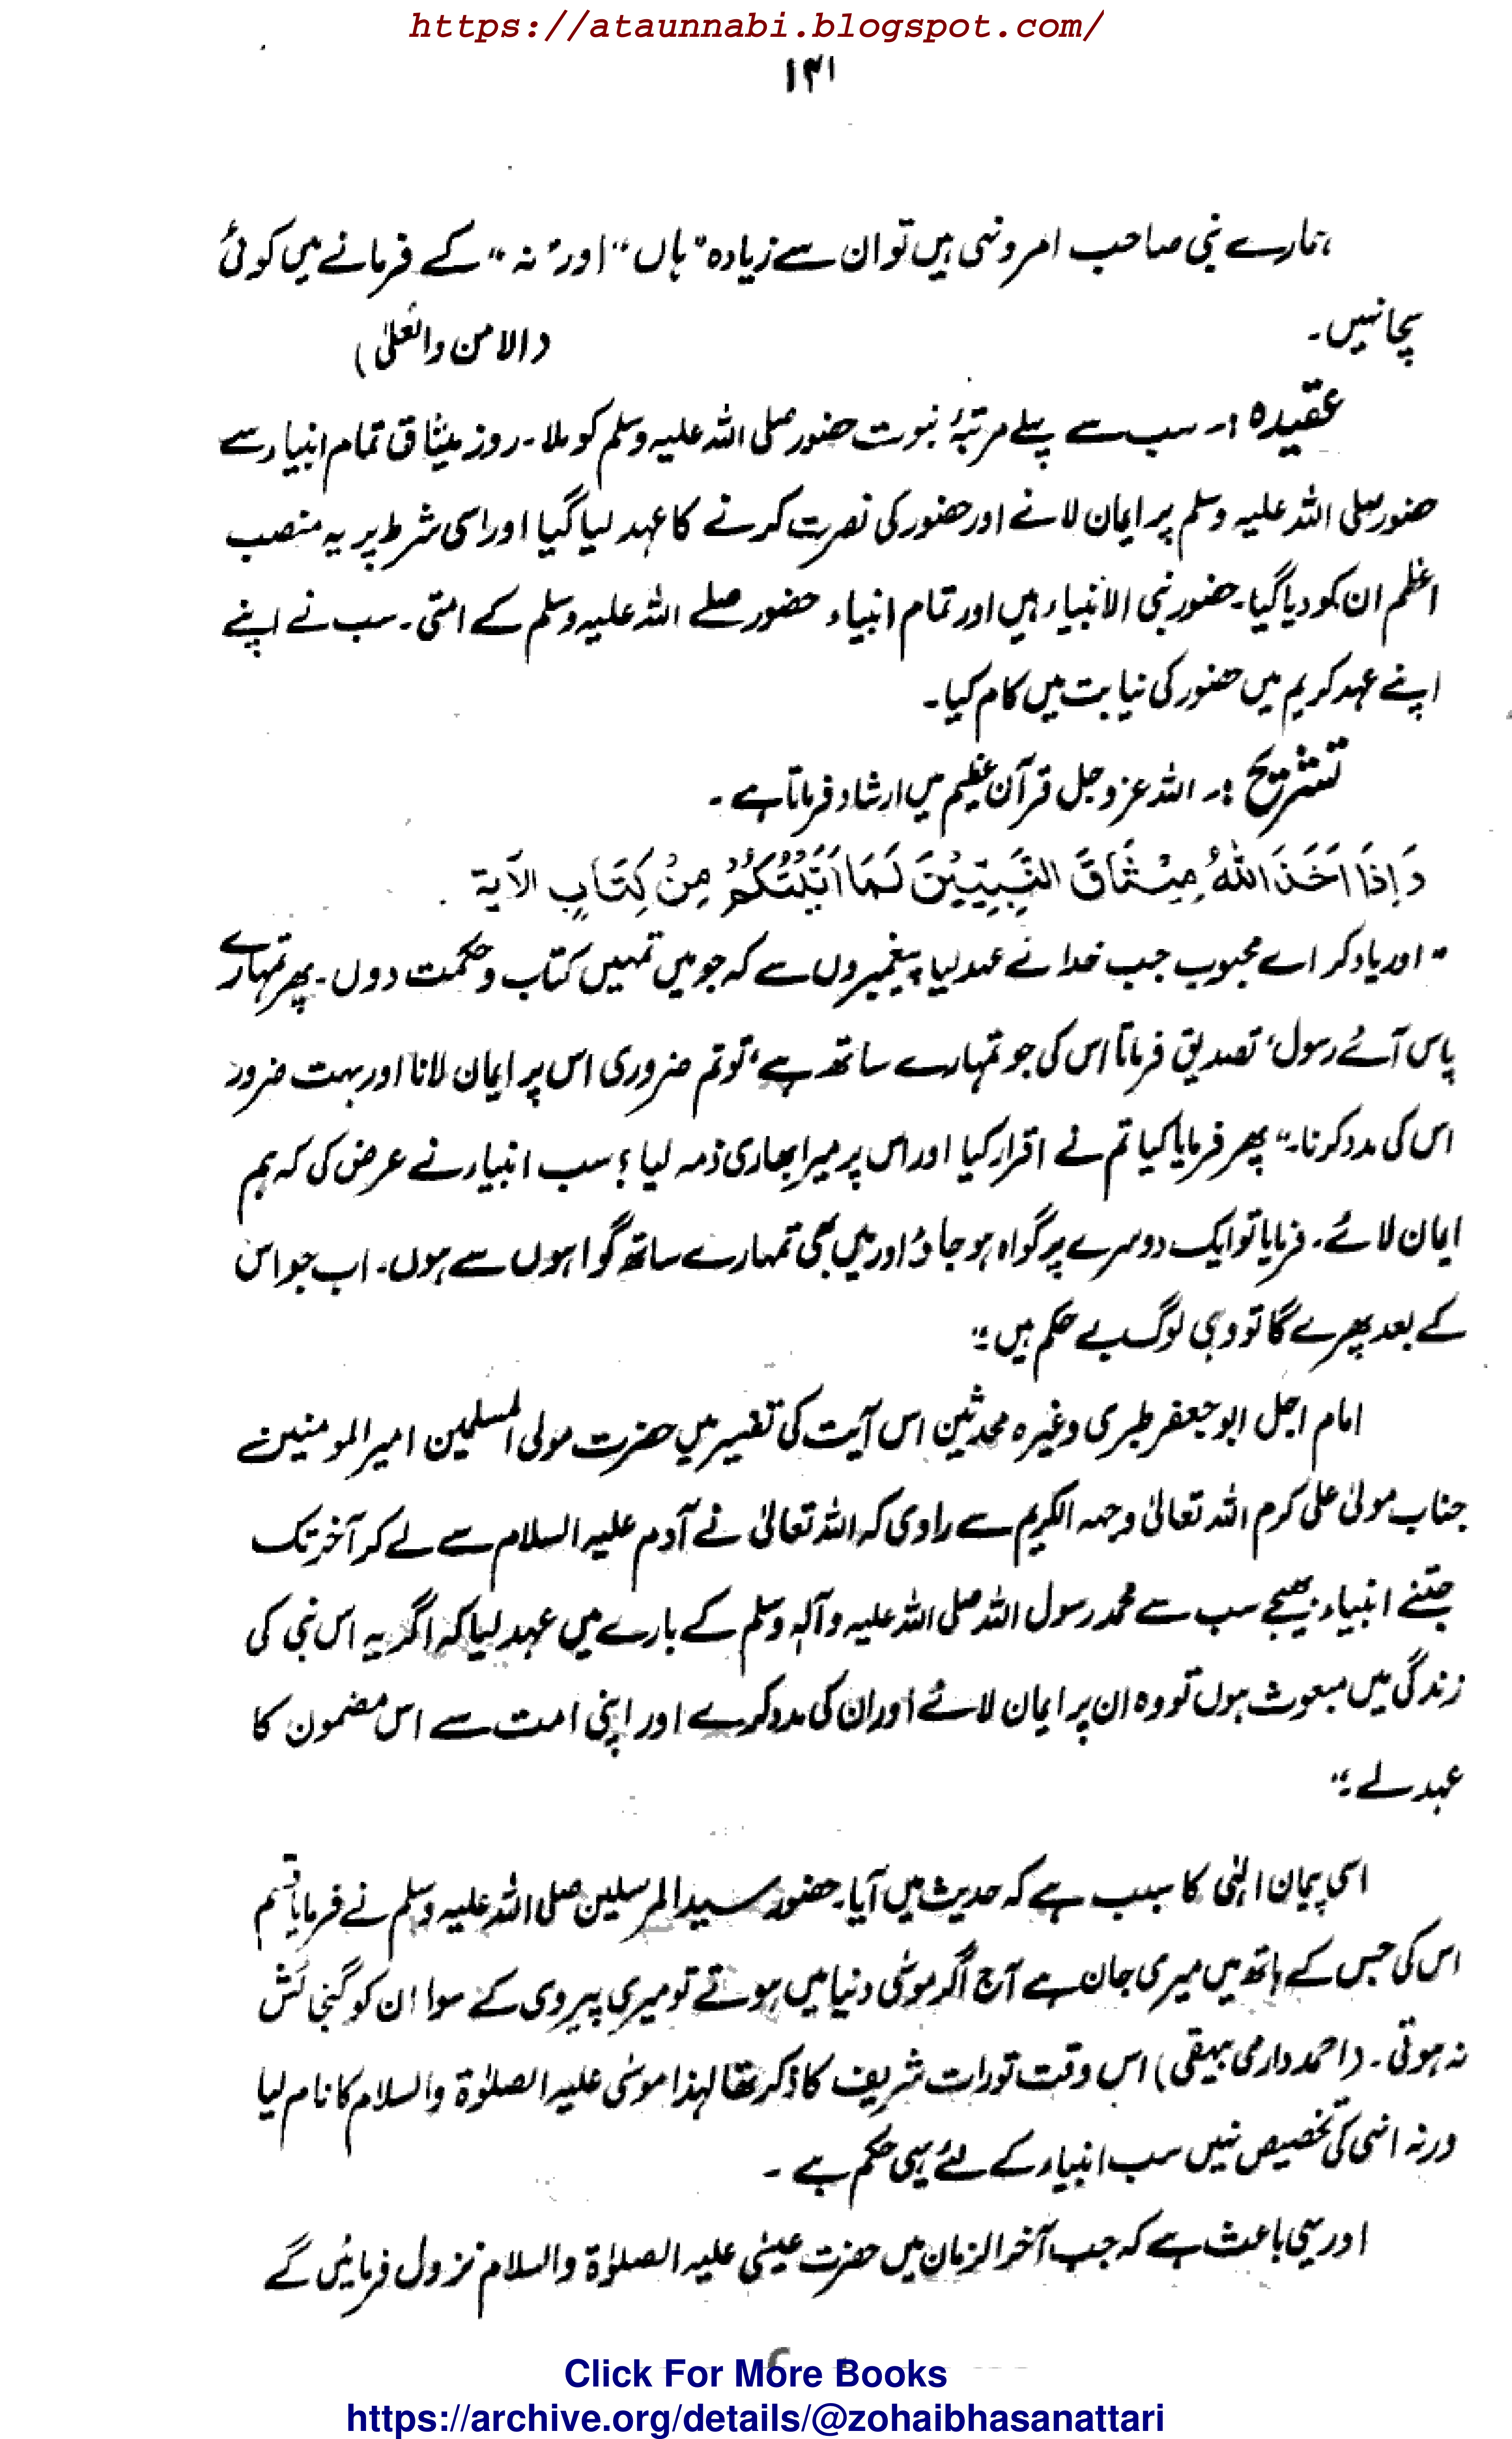 https://ataunnabi.blogspot.com/
۱۴۱
ہمارے نبی صاحب امر ونہی ہیں تو ان سے زیادہ "ہاں" اور "نہ" کے فرمانے میں کوئی
سچا نہیں۔ (الامن والعلیٰ)
عقیدہ :۔ سب سے پہلے مرتبۂ نبوت حضور صلی اللہ علیہ وسلم کو ملا۔ روز میثاق تمام انبیاء سے
حضور صلی اللہ علیہ وسلم پر ایمان لانے اور حضور کی نصرت کرنے کا عہد لیا گیا اور اسی شرط پر یہ منصب
اعظم ان کو دیا گیا۔ حضور نبی الانبیاء ہیں اور تمام انبیاء حضور صلے اللہ علیہ وسلم کے امتی۔ سب نے اپنے
اپنے عہد کریم میں حضور کی نیابت میں کام کیا۔
تشریح :۔ اللہ عزوجل قرآن عظیم میں ارشاد فرماتا ہے ۔
وَاِذَا اَخَذَ اللهُ مِيْثَاقَ النَّبِيِّيْنَ لَمَا اٰتَيْتُكُمْ مِنْ كِتَابٍ الآية
"اور یاد کر اے محبوب جب خدا نے عہد لیا پیغمبروں سے کہ جو میں تمہیں کتاب و حکمت دوں۔ پھر تمہارے
پاس آئے رسول، تصدیق فرماتا اس کی جو تمہارے ساتھ ہے، تو تم ضروری اس پر ایمان لانا اور بہت ضرور
اس کی مدد کرنا۔" پھر فرمایا کیا تم نے اقرار کیا اور اس پر میرا بھاری ذمہ لیا ؟ سب انبیاء نے عرض کی کہ ہم
ایمان لائے۔ فرمایا تو ایک دوسرے پر گواہ ہو جاؤ اور میں بھی تمہارے ساتھ گواہوں سے ہوں۔ اب جو اس
کے بعد پھرے گا تو وہی لوگ بے حکم ہیں۔"
امام اجل ابوجعفر طبری وغیرہ محدثین اس آیت کی تفسیر میں حضرت مولی المسلمین امیر المومنین نے
جناب مولیٰ علی کرم اللہ تعالیٰ وجہہ الکریم سے راوی کہ اللہ تعالیٰ نے آدم علیہ السلام سے لے کر آخر تک
جتنے انبیاء بھیجے سب سے محمد رسول اللہ صلی اللہ علیہ وآلہٖ وسلم کے بارے میں عہد لیا کہ اگر یہ اس نبی کی
زندگی میں مبعوث ہوں تو وہ ان پر ایمان لائے اور ان کی مدد کرے اور اپنی امت سے اس مضمون کا
عہد لے۔"
اسی پیمان الٰہی کا سبب ہے کہ حدیث میں آیا۔ حضور سید المرسلین صلی اللہ علیہ وسلم نے فرمایا قسم
اس کی جس کے ہاتھ میں میری جان ہے آج اگر موسٰی دنیا میں ہوتے تو میری پیروی کے سوا ان کو گنجائش
نہ ہوتی۔ (احمد دارمی بیہقی) اس وقت تورات شریف کا ذکر تھا لہذا موسٰی علیہ الصلوٰۃ والسلام کا نام لیا
ورنہ انہی کی تخصیص نہیں سب انبیاء کے لئے یہی حکم ہے ۔
اور یہی باعث ہے کہ جب آخر الزمان میں حضرت عیسٰی علیہ الصلوٰۃ والسلام نزول فرمائیں گے
Click For More Books
https://archive.org/details/@zohaibhasanattari